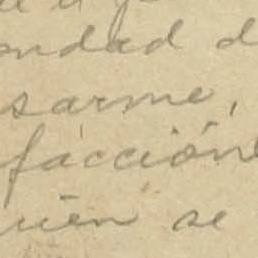 ondad d
sarme,
facción
uien se